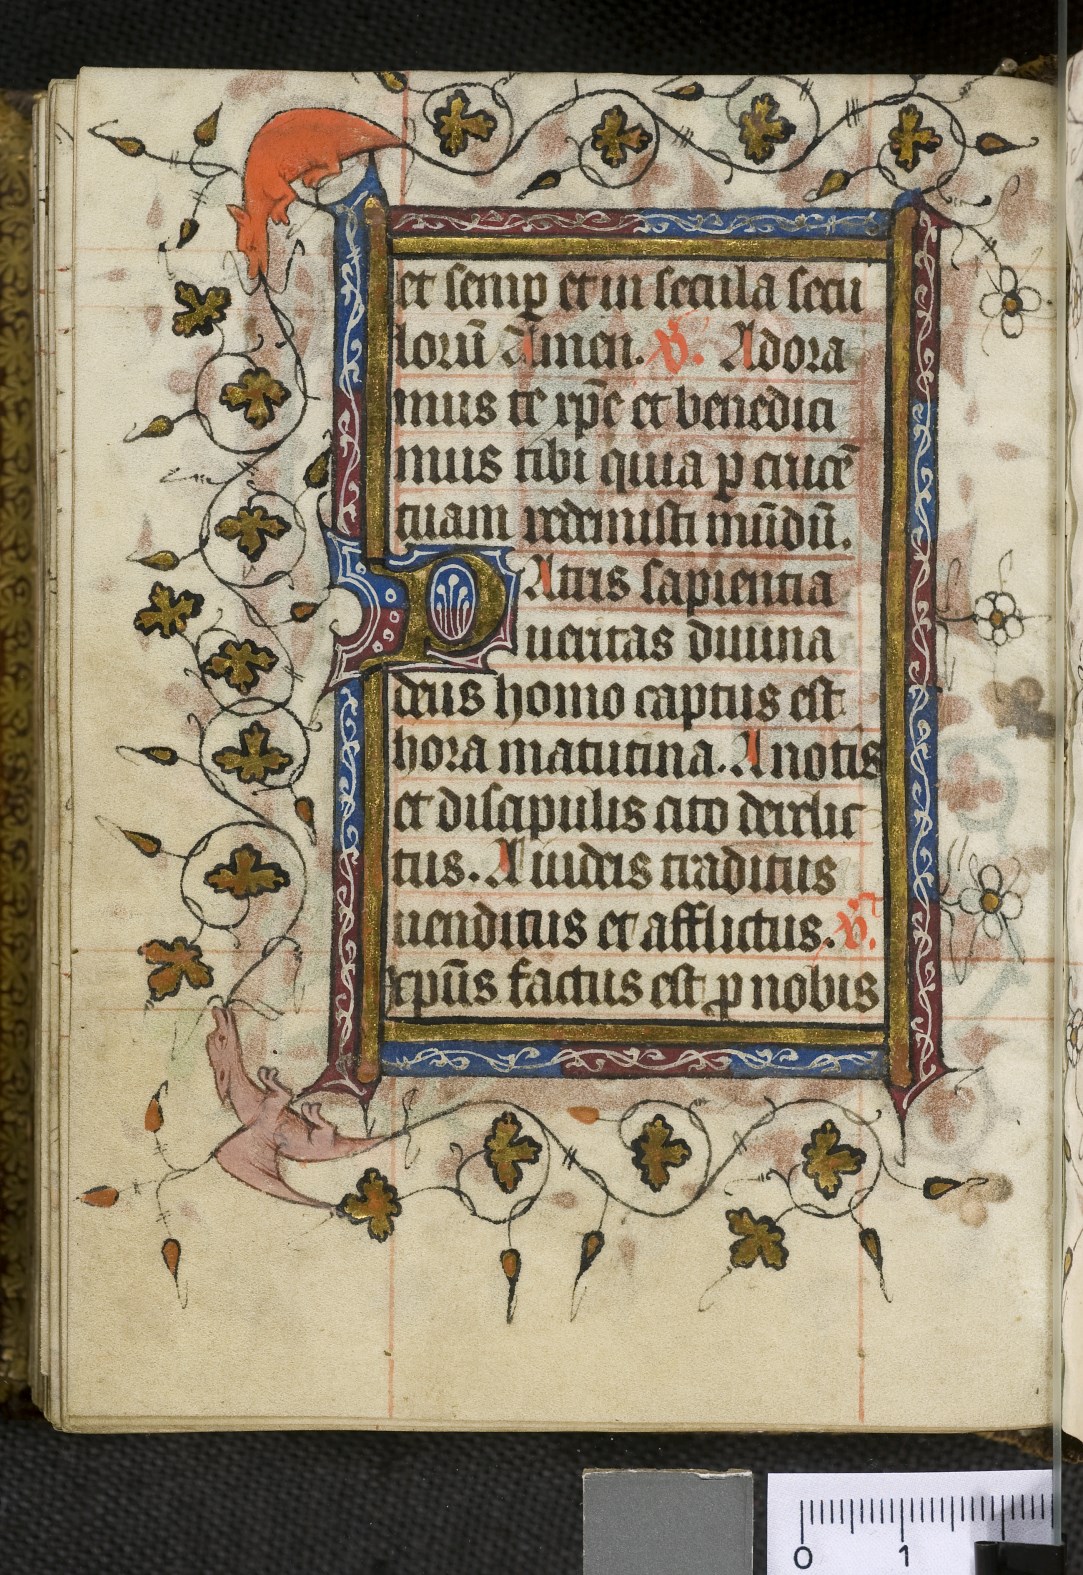 et semp et in secula secu
lorū Amen. v̄. Adora
mus te xp̄e et benedici
mus tibi quia p crucē
tuam redemisti mūdū.
PAtris sapientia
ueritas diuina
deus homo captus est
hora matutina. A notis
et discipulis cito derelic
tus. A iudeis traditus
uenditus et afflictus. v̄.
xpūs factus est p nobis
0 1